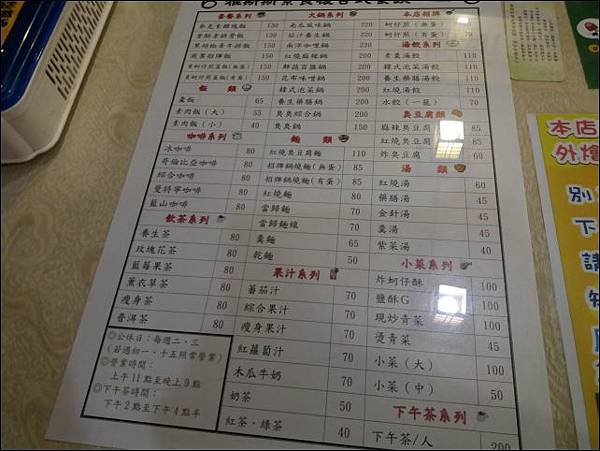 套餐系列
150
150
130
150
150
飯 類
羹飯 65
素肉飯 (大) 55
素肉飯 (小) 40
咖啡系列
冰咖啡 80
哥倫比亞咖啡 80
綜合咖啡 80
曼特寧咖啡 80
藍山咖啡 80
飲茶系列
養生茶 80
玫瑰花茶 80
藍莓果茶 80
薰衣草茶 80
瘦身茶 80
普洱茶 80
◎公休日：每週二、三
(若遇初一、十五照常營業)
◎營業時間：
上午11點至晚上9點
◎下午茶時間：
下午2點至下午4點半
火鍋系列
南瓜風味鍋 220
茄汁養生鍋 220
南洋咖哩鍋 200
紅燒麻辣鍋 200
鮮蔬百匯鍋 200
昆布味噌鍋 200
韓式泡菜鍋 200
養生藥膳鍋 200
臭臭綜合鍋 200
臭臭鍋 150
麵 類
紅燒臭豆腐麵 110
招牌鍋燒麵 (無蛋) 85
招牌鍋燒麵 (有蛋) 85
紅燒麵 90
當歸麵 90
當歸麵線 90
羹麵 65
乾麵 50
果汁系列
蕃茄汁 70
綜合果汁 70
瘦身果汁 70
紅蘿蔔汁 70
木瓜牛奶 70
奶茶 50
紅茶、綠茶 40
本店招牌
蚵仔煎 (無蛋)
蚵仔煎 (有蛋)
湯餃系列
羹湯餃
韓式泡菜湯餃
養生藥膳湯餃
紅燒湯餃
水餃 (一籠)
臭豆腐類
麻辣臭豆腐 85
紅燒臭豆腐 85
炸臭豆腐
湯 類
紅燒湯 60
藥膳湯 45
金針湯 45
羹湯 45
紫菜湯 45
小菜系列
炸蚵仔酥 100
鹽酥G 100
現炒青菜 100
燙青菜 45
小菜 (大) 100
小菜 (中) 50
下午茶系列
下午茶/人 200
本店
外燴
別
下
請